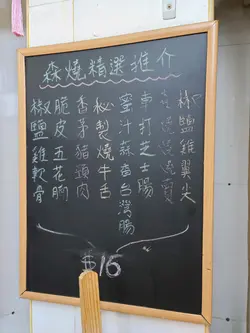 森燒精選推介
椒鹽雞翼尖
車打芝士腸
蜜汁蒜香台灣腸
秘製燒牛舌
香茅豬頸肉
脆皮五花腩
椒鹽雞軟骨
$16